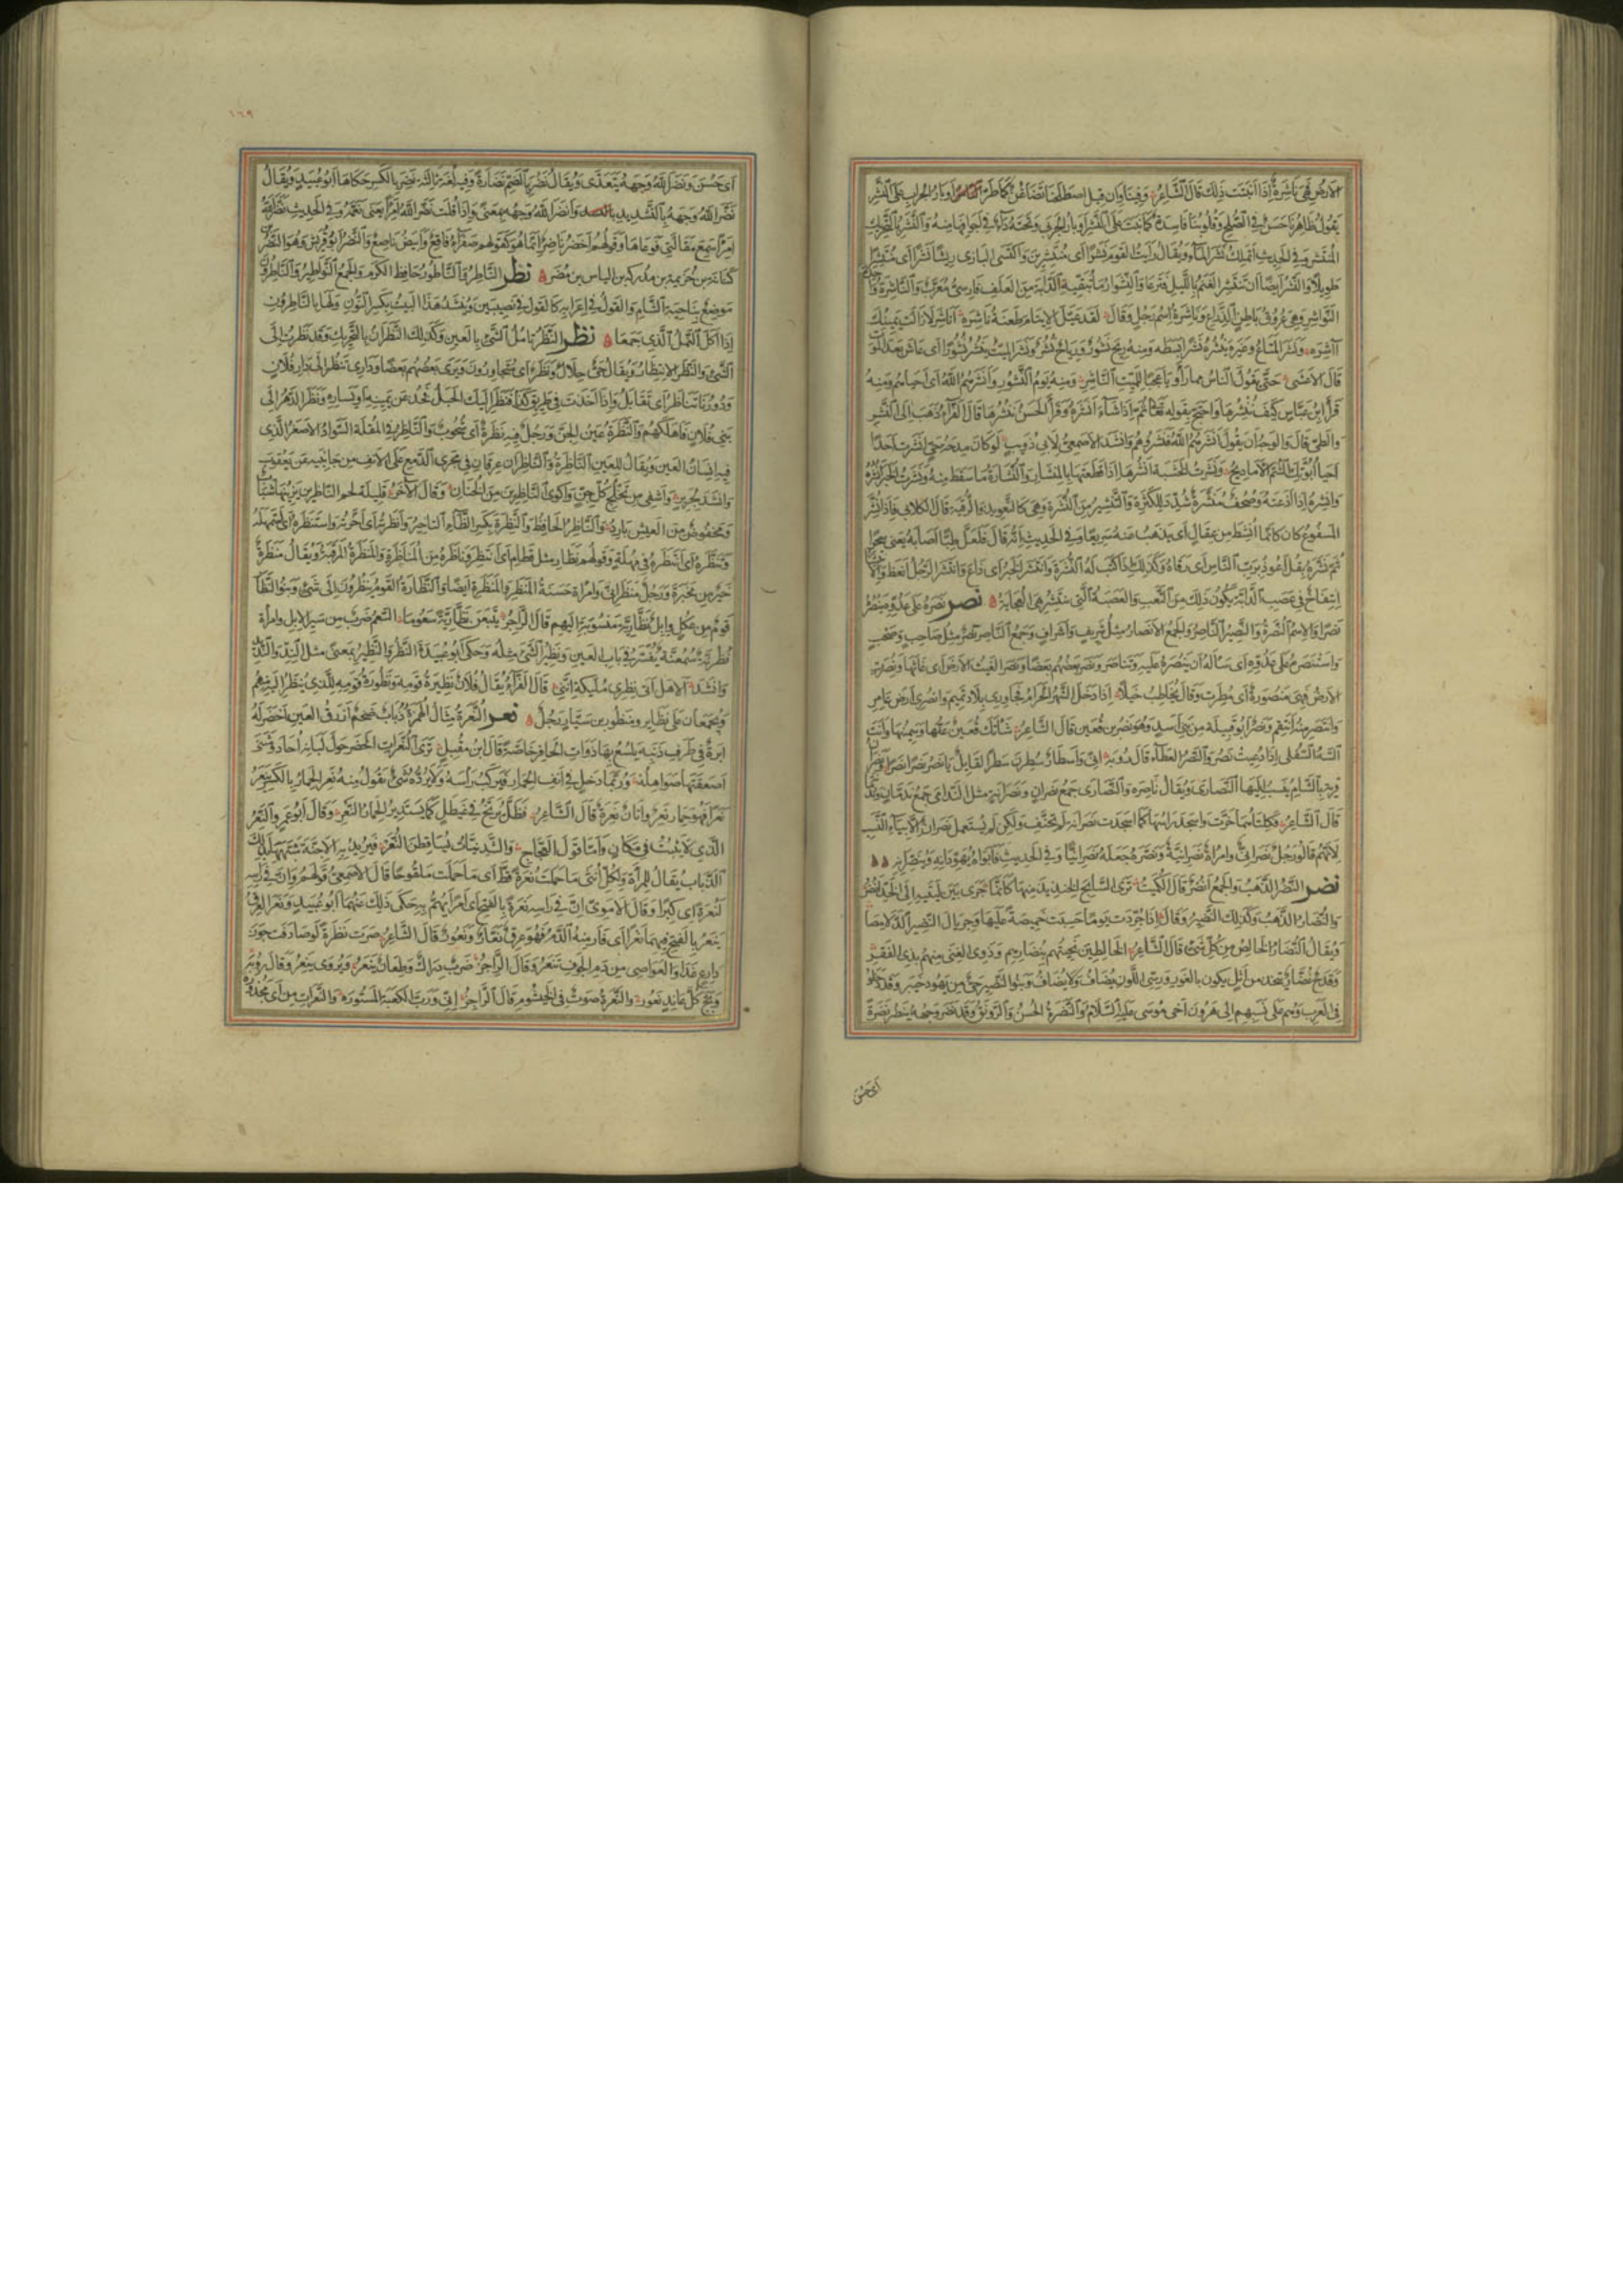 الارض فهى ناشرة اذا انبتت ذلك قال الشاعر وفينا وان قيل اصطلحنا تضاغن كما طر اوبار الجراب على النشر
يقول ظاهرنا حسن فى الصلح وقلوبنا فاسدة كما تنبت على النشر اوبار الجربى وتحته داء فى اجوافها منه والنشر بالتحريك
المنتشر وفى الحديث اتملك نشر الماء ويقال رايت القوم نشرا اى منتشرين واكتسى البازى ريشا نشرا اى منتشرا
طويلا والنشر ايضا ان تنتشر الغنم بالليل فترعا والنشوار ما تبقيه الدابة من العلف فارسى معرب والناشرة واحدة
النواشر وهى عروق باطن الذراع وناشرة اسم رجل وقال لقد عيل الايتام طعنة ناشرة اناشر لا زالت يمينك
آشره ونشر المتاع وغيره ينشره نشرا بسطه ومنه ريح نشور ورياح نشر ونشر الميت ينشر نشورا اى عاش بعد الموت
قال الاعشى حتى يقول الناس مما راوا يا عجبا للميت الناشر ومنه يوم النشور وانشرهم الله اى احياهم ومنه
قرا ابن عباس كيف ننشرها واحتج بقوله تعالى ثم اذا شاء انشره وقرا الحسن ننشرها قال الفراء ذهب الى النشر
والطى قال والوجه ان يقول انشرهم الله فنشروهم وانشد الاصمعى لابى ذويب لو كان مدحة حى انشرت احدا
احيا ابوتك الشم الاماديح ونشرت الخشبة انشرها اذا قطعتها بالمنشار والنشارة ما سقط منه ونشرت الخبر انشره
وانشره اذا اذعته وصحف منشرة شدد للكثرة والتنشير من النشرة وهى كالتعويذ والرقية قال الكلابى فاذا نشر
المسفوع كان كانما انشط من عقال اى يذهب عنه سريعا وفى الحديث انه قال فلعل طبا اصابه يعنى سحرا
ثم نشره بقل اعوذ برب الناس اى رقاه وكذلك اذا كتب له النشرة وانتشر الخبر اى ذاع وانتشر الرجل انعظ والانتشار
انتفاخ فى عصب الدابة يكون ذلك من التعب والعصبة التى تنتشر هى العجاية نصر نصره على عدوه ينصره
نصرا والاسم النصرة والنصير الناصر والجمع الانصار مثل شريف واشراف وجمع الناصر نصر مثل صاحب وصحب
واستنصره على عدوه اى سأله ان ينصره عليه وتناصروا نصر بعضهم بعضا ونصر الغيث الارض اى غاثها ونصرت
الارض فهى منصورة اى مطرت وقال يخاطب خيلا اذا دخل الشهر الحرام فجاوزى بلاد تميم وانصرى ارض عامر
وانتصر منه انتقم ونصر ابو قبيلة من بنى اسد وهو نصر بن قعين قال الشاعر شأتك قعين غثها وسمينها وانت
السه السفلى اذا دعيت نصر والنصر العطاء قال رؤبة انى واسطار سطرن سطرا لقائل يا نصر نصرا نصرا ونصران
قرية بالشام ينسب اليها النصارى ويقال ناصرة والنصارى جمع نصران ونصرانة مثل الندامى جمع ندمان وندمانة
قال الشاعر فكلتاهما خرت واسجد راسها كما اسجدت نصرانة لم تحنف ولكن لم يستعمل نصران الا بياء النسب
لانهم قالوا رجل نصرانى وامراة نصرانية ونصره جعله نصرانيا وفى الحديث فابواه يهودانه وينصرانه
نضر النضر الذهب والجمع انضر قال الكميت ترى السابح الخنذيذ منها كانما جرى بين ليتيه الى الخد انضر
والنضار الذهب وكذلك النضير وقال اذا جردت يوما حسبت خميصة عليها وجريال النضير الدلامصا
ويقال النضار الخالص من كل شى قال الشاعر الخالطين نحيتهم بنضارهم وذوى الغنى منهم بذى الفقر
وقدح نضار يتخذ من اثل يكون بالغور ورسى اللون يضاف ولا يضاف وبنو النضير حى من يهود خيبر وقد دخلوا
فى العرب وهم على نسبهم الى هرون اخى موسى عليه السلام والنضرة الحسن والرونق وقد نضر وجهه ينضر نضرة
اى حسن
١٦٩
اى حسن ونضر الله وجهه يتعدى ويقال نضر بالضم نضارة وفيه لغة ثالثة نضر بالكسر حكاها ابو عبيد ويقال
نضر الله وجهه بالتشديد وانضر الله وجهه بمعنى واذا قلت نضر الله امرا يعنى نعمه وفى الحديث نضر الله
امرا سمع مقالتى فوعاها وقولهم اخضر ناضر انما هو كقولهم صفراء فاقع وابيض ناصع والنضر ابو قريش وهو النضر بن
كنانة بن خزيمة بن مدركة بن الياس بن مضر نطر الناطر والناطور حافظ الكرم والجمع النواطير والناطرون
موضع بناحية الشام والقول فى اعرابه كالقول فى نصيبين وينشد هذا البيت بكسر النون ولها بالناطرون
اذا اكل النمل الذى جمعا نظر النظر تامل الشى بالعين وكذلك النظران بالتحريك وقد نظرت الى
الشى والنظر الانتظار ويقال حى حلال ونظر اى متجاورون ويرى بعضهم بعضا ودارى تنظر الى دار فلان
ودورنا تناظر اى تقابل واذا اخذت فى طريق كذا فنظر اليك الجبل فخذ عن يمينه او يساره ونظر الدهر الى
بنى فلان فاهلكهم والنظرة عين الجن ورجل فيه نظرة اى شحوب والناظر فى المقلة السواد الاصغر الذى
فيه انسان العين ويقال للعين الناظرة والناظران عرقان فى مجرى الدمع على الانف من جانبيه عن يعقوب
وانشد لجرير واشفى من تخلج كل جن واكوى الناظرين من الخنان وقال الاخر قليلة لحم الناظرين يزينها شباب
ومخفوض من العيش بارد والناظر الحافظ والنظرة بكسر الظاء التاخير وانظرته اى اخرته واستنظره اى استمهله
وتنظره اى انتظره فى مهلة وقولهم نظار مثل قطام اى انتظر وناظره من المناظرة والمنظرة المرقبة ويقال منظره
خير من مخبره ورجل منظرانى وامراة حسنة المنظر والمنظرة ايضا والنظارة القوم ينظرون الى شى وبنو النظار
قوم من عكل وابل نظارية منسوبة اليهم قال الراجز يتبعن نظارية سعوما السعم ضرب من سير الابل وامراة
نظرنة سمعنة يفسر فى باب العين ونظير الشى مثله وحكى ابو عبيدة النظر والنظير بمعنى مثل الند والنديد
وانشد الا هل اتى نظرى مليكة اننى قال الفراء يقال فلان نظيرة قومه ونظورة قومه للذى ينظر اليه منهم
ويجمعان على نظاير ومنظور بن سيار رجل نعر النعرة مثال الهمزة ذباب ضخم ازرق العين اخضر له
ابرة فى طرف ذنبه يلسع بها ذوات الحافر خاصة قال ابن مقبل ترى النعرات الخضر حول لبانه احاد ومثنى
اصعقتها صواهله وربما دخل فى انف الحمار فيركب راسه ولا يرده شى يقول منه نعر الحمار بالكسر ينعر
نعرا فهو حمار نعر واتان نعرة قال الشاعر فظل يرنح فى غيطل كما يستدير الحمار النعر وقال ابو عمرو النعر
الذى لا يثبت فى مكان واما قول العجاج والشدنيات يساقطن النعر فيريد به الاجنة شبهها بذلك
الذباب يقال للمراة ولكل انثى ما حملت نعرة قط اى ما حملت ملقوحا قال الاصمعى قولهم وان فى راسه
لنعرة اى كبرا وقال الاموى ان فى راسه نعرة بالفتح اى امرا يهم به حكى ذلك عنهما ابو عبيد ونعر العرق
ينعر بالفتح فيهما نعرا اى فار منه الدم فهو عرق نعار ونعور قال الشاعر صرت نظرة لو صادفت جوز
دارع غدا والعواصى من دم الجوف تنعر وقال الراجز ضرب دراك وطعان ينعر ويروى ينعر وقال رؤبة
وبج كل عاند نعور والنعرة صوت فى الخيشوم قال الراجز انى ورب الكعبة المستوره والنعرات من ابى محذوره